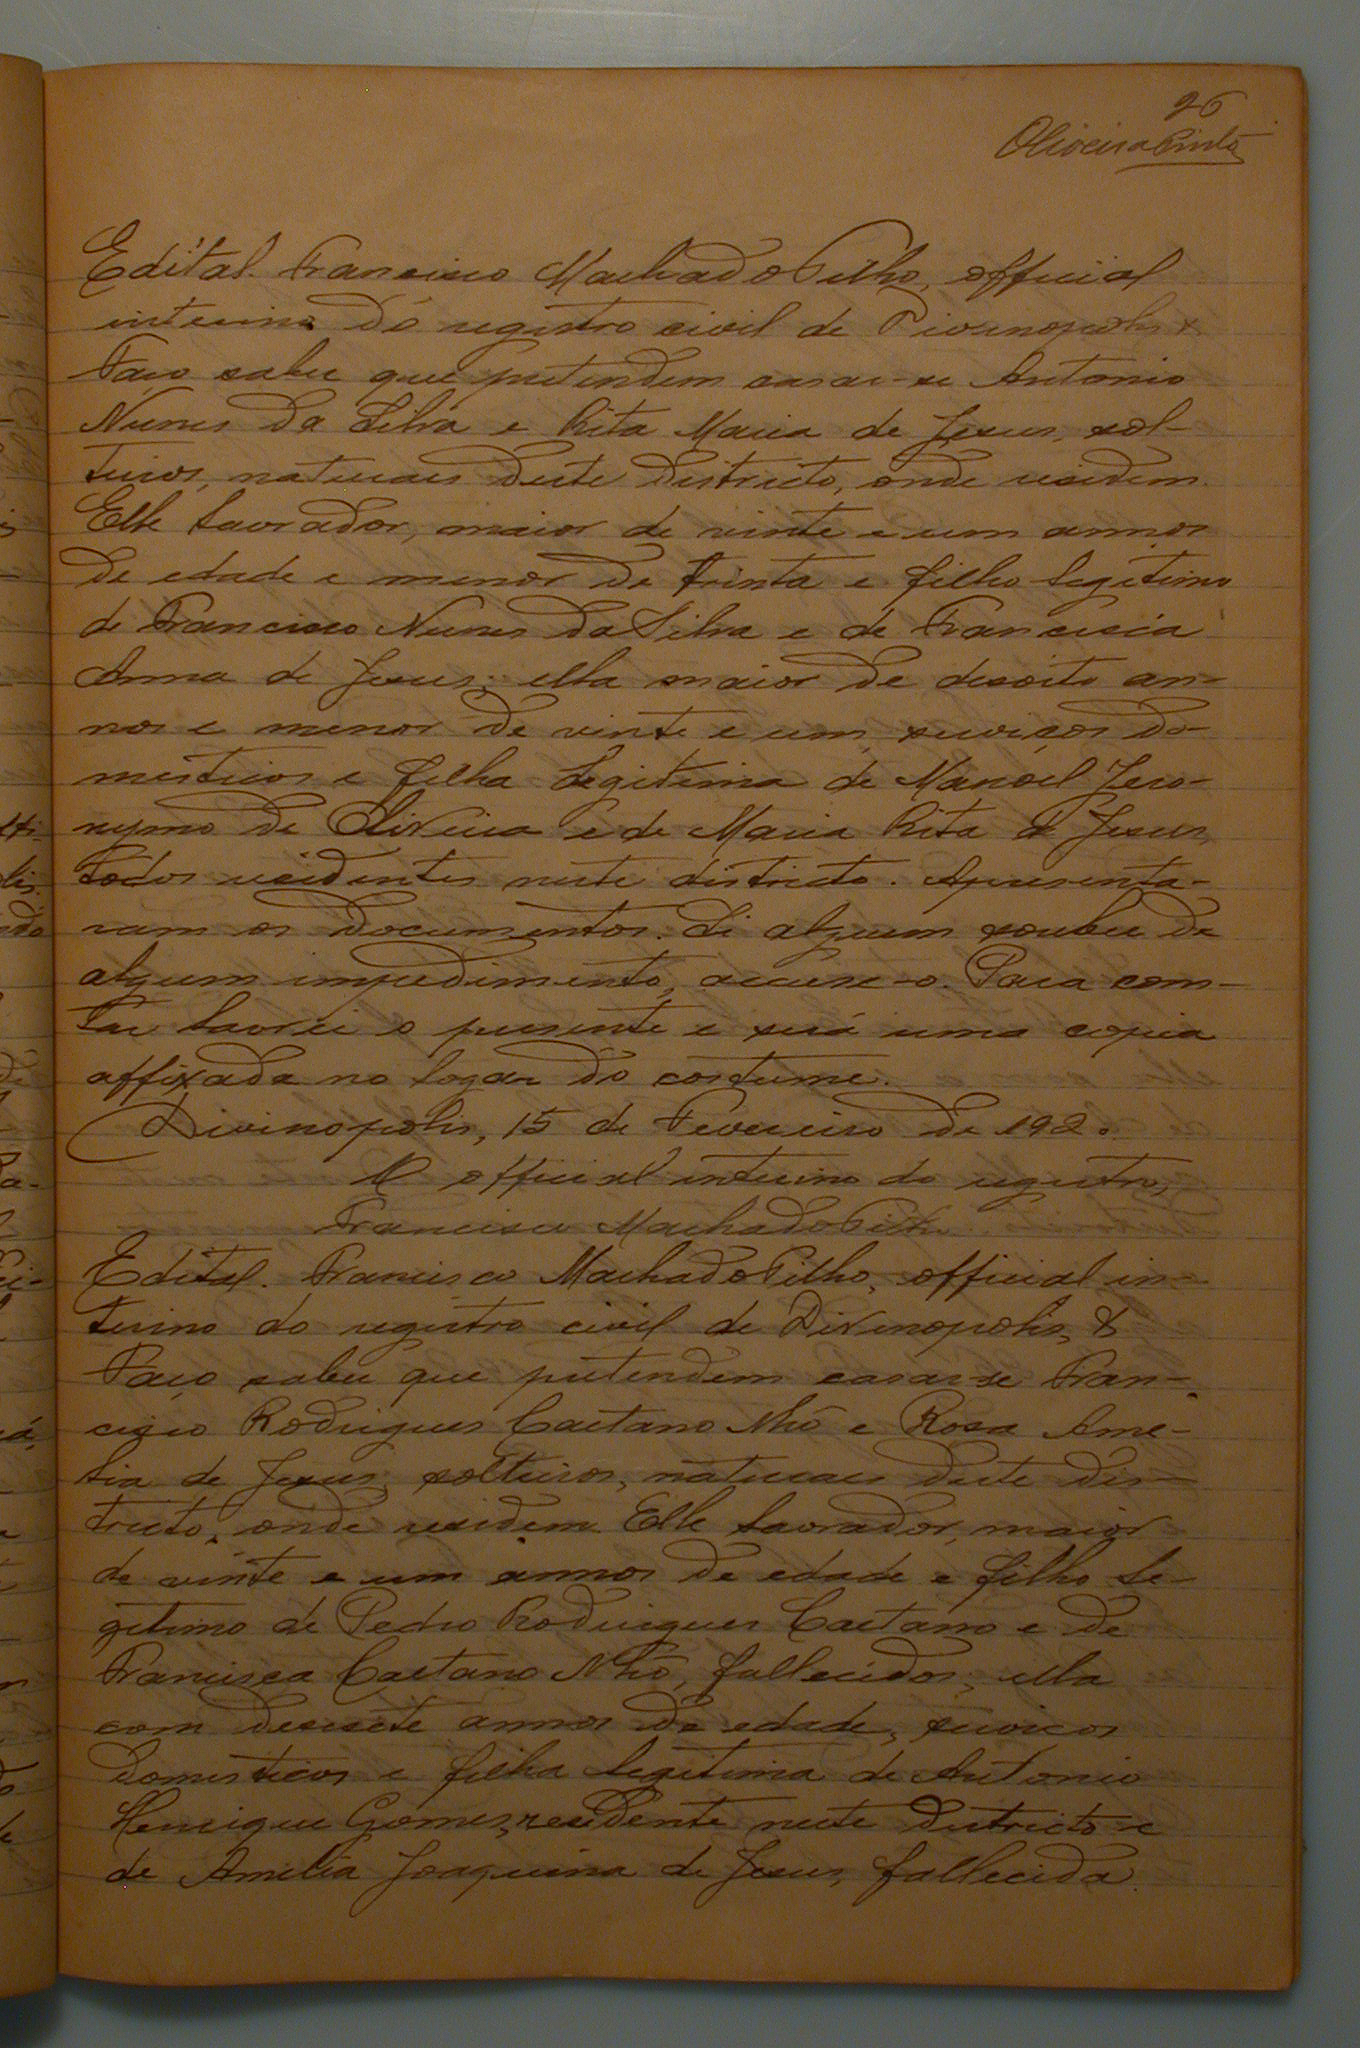 26
Oliveira Pinto
Edital. Francisco Machado Filho, official
interino do registro civil de Divinopolis &
Faço saber que pretendem casar-se Antonio
Nunes da Silva e Rita Maria de Jesus, sol-
teiros, naturaes deste districto, onde residem.
Elle lavrador, maior de vinte e um annos
de edade e menor de trinta e filho legitimo
de Francisco Nunes da Silva e de Francisca
Anna de Jesus; ella maior de desoito an-
nos e menor de vinte e um, serviços do-
mesticos e filha legitima de Manoel Jero-
nymo de Oliveira e de Maria Rita de Jesus,
todos residentes neste districto. Apresenta-
ram os documentos. Si alguem souber de
algum impedimento, accuse-o. Para cons-
tar lavrei o presente e será uma copia
affixada no logar do costume.
Divinopolis, 15 de Fevereiro de 1920
O official interino do registro,
Francisco Machado Filho.
Edital. Francisco Machado Filho, official in-
terino do registro civil de Divinopolis, &
Faço saber que pretendem casar-se Fran-
cisco Rodrigues Caetano Nhô e Rosa Ame-
lia de Jesus, solteiros, naturaes deste dis-
tricto, onde residem. Elle lavrador, maior
de vinte e um annos de edade e filho le-
gitimo de Pedro Rodrigues Caetano e de
Francisca Caetano Nhô, fallecidos; ella
com desesete annos de edade, serviços
domesticos e filha legitima de Antonio
Henrique Gomes, residente neste districto e
de Amelia Joaquina de Jesus, fallecida.